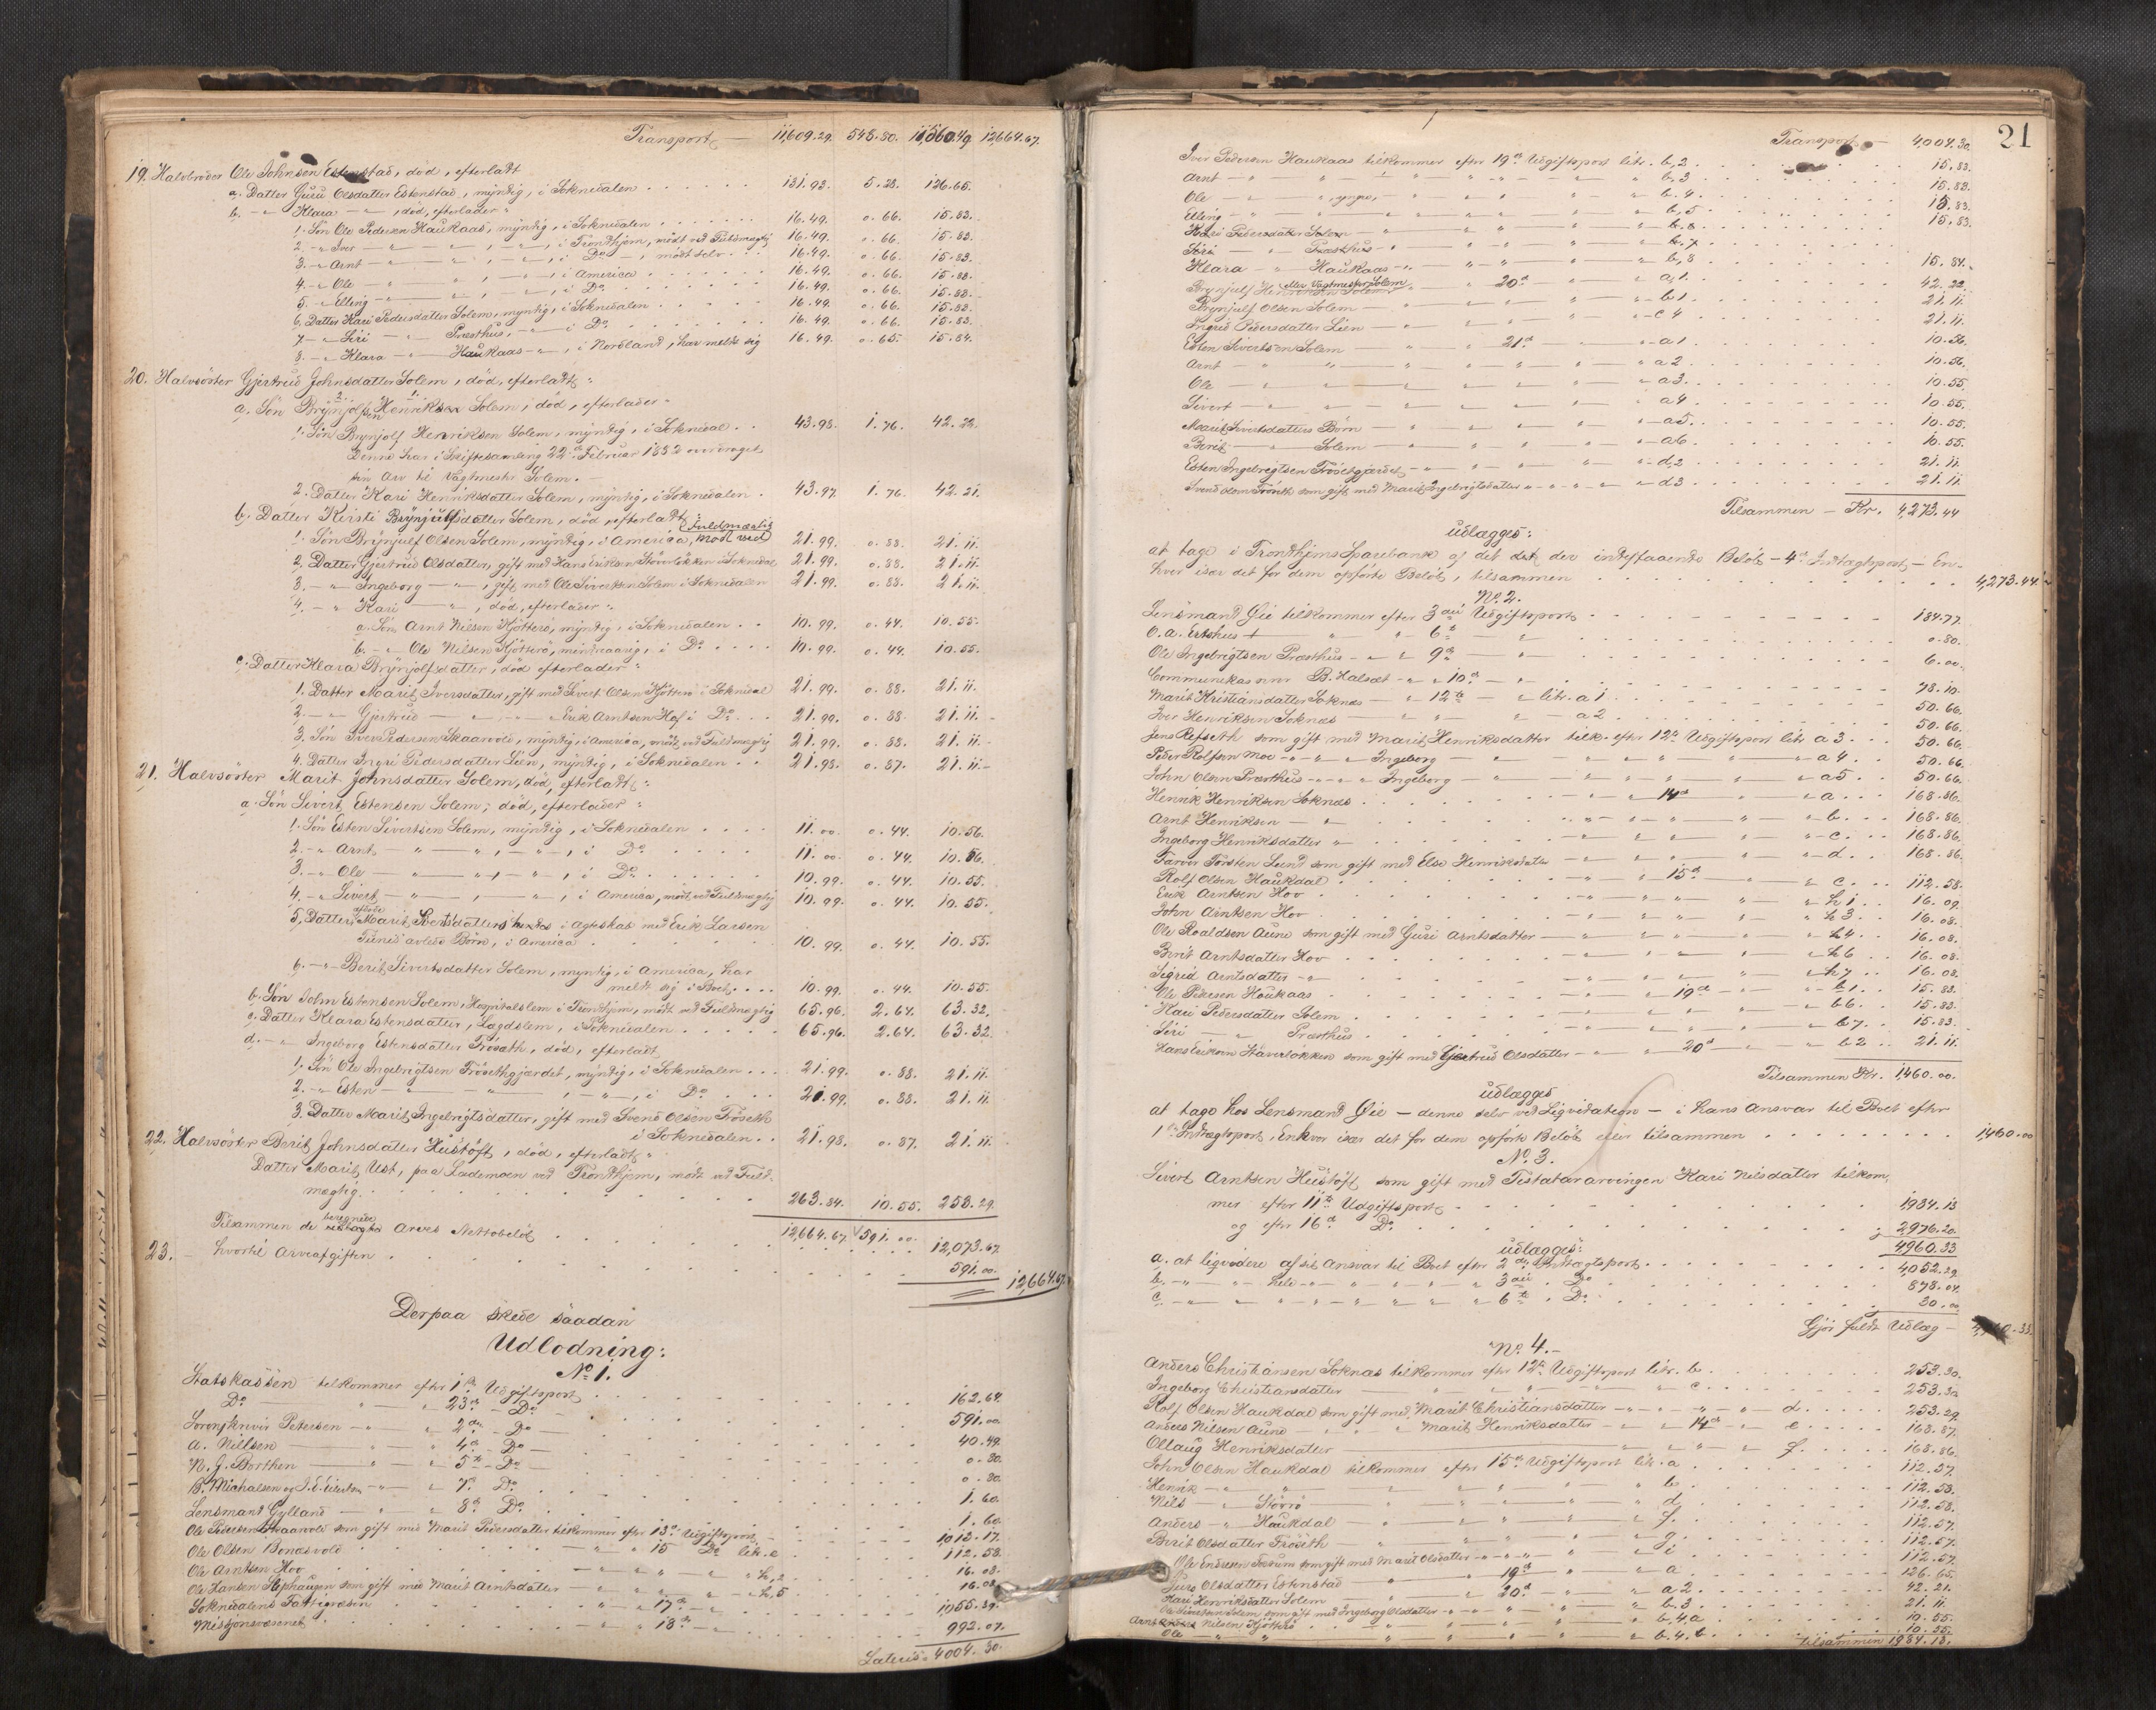 Transport — 11609.29. 548.80. 11,060.49 12664.67.
19. Halvbroder Ole Johnsen Estenstad, död, efterladt
a. Datter Guru Olsdatter Estenstad, myndig, i Soknedalen . . . 131.93. 5.28. 126.65.
b. — " Klara — " — , död, efterlader "
1. Sön Ole Pedersen Haukaas, myndig, i Soknedalen . . . 16.49. 0.66. 15.83.
2. " Iver — " — " — , " — , i Trondhjem, mödt ved Fuldmægtig 16.49. 0.66. 15.83.
3. " Arnt — " — " — , " — , i Do —, mödt selv . . . 16.49. 0.66. 15.83.
4. " Ole — " — " — , " — , i America . . . 16.49. 0.66. 15.83.
5. " Elling — " — " — , " — , i Do . . . 16.49. 0.66. 15.83.
6. Datter Kari Pedersdatter Solem, myndig, i Soknedalen . . . 16.49. 0.66. 15.83.
7. — " Siri — " Præsthus, — " — i Do . . . 16.49. 0.66. 15.83.
8. — " Klara — " — Haukaas — " —, i Nordland, har meldt sig 16.49. 0.65. 15.84.
20. Halvsöster Gjertrud Johnsdatter Solem, död, efterladt :
a. Sön Brynjolf Henriksen Solem, död, efterlader "
1. Sön Brynjolf Henriksen Solem, myndig, i Soknedal . . 43.98. 1.76. 42.22.
Denne har i Skiftesamling 22de Februar 1882 overdraget
sin Arv til Vagtmester Solem. —
2. Datter Kari Henriksdatter Solem, myndig, i Soknedalen . 43.97. 1.76. 42.21.
b. Datter Kirsti Brynjulfsdatter Solem, död, efterladt :
Fuldmægtig
1. Sön Brynjulf Olsen Solem, myndig, i America, mödt ved 21.99. 0.88. 21.11.
2. Datter Gjertrud Olsdatter, gift med Hans Eriksen Störvlökken i Soknedal 21.99. 0.88. 21.11.
3. — " Ingeborg — " —, gift med Ole Sivertsen Solem i Soknedalen 21.99. 0.88. 21.11.
4. — " Kari — " — , död, efterlader :
a. Sön Arnt Nilsen Hjötterö, myndig, i Soknedalen . . 10.99. 0.44. 10.55.
b. — " Ole Nilsen Hjötterö, mindreaarig, i Do . . . 10.99. 0.44. 10.55.
c. Datter Klara Brynjolfsdatter, död efterlader "
1. Datter Marit Iversdatter, gift med Sivert Olsen Hjötterö i Soknedal 21.99. 0.88. 21.11.
2. — " Gjertrud — " — " — " Erik Arntsen Hof i Do . . . 21.99. 0.88. 21.11.
3. Sön Iver Pedersen Skaarvold, myndig, i America, mödt ved Fuldmægtig 21.99. 0.88. 21.11.
4. Datter Ingri Pedersdatter Lien, myndig, i Soknedalen . . 21.98. 0.87. 21.11.
21. Halvsöster Marit Johnsdatter Solem, död, efterladt :
a. Sön Sivert Estensen Solem, död, efterlader "
1. Sön Esten Sivertsen Solem, myndig, i Soknedalen . . . 11.00. 0.44. 10.56.
2. — " Arnt — " — " , — " — , i Do . . . 11.00. 0.44. 10.56.
3. — " Ole — " — " , — " — , i Do . . . 10.99. 0.44. 10.55.
4. — " Sivert — " — , — " — , i America, mödt ved Fuldmægtig 10.99. 0.44. 10.55.
afdöde
5. Datter Marit Sivertsdatters hendes i Ægteskab med Erik Larsen
avlede Børn, i America . . . 10.99. 0.44. 10.55.
6. — " — Berit Sivertsdatter Solem, myndig, i America, har
meldt sig i Boet . . . 10.99. 0.44. 10.55.
b. Sön John Estensen Solem, Hospitalslem i Trondhjem, mödt ved Fuldmægtig 65.96. 2.64. 63.32.
c. Datter Klara Estensdatter, Lægdslem, i Soknedalen . . . 65.96. 2.64. 63.32.
d. — " — Ingeborg Estensdatter Fröseth, död, efterladt
1. Sön Ole Ingebrigtsen Frösethgjærdet, myndig, i Soknedalen . . 21.99. 0.88. 21.11.
2. — " Esten — " — " — , " — , i Do . . . 21.99. 0.88. 21.11.
3. Datter Marit Ingebrigtsdatter, gift med Svend Olsen Fröseth
i Soknedalen . . 21.98. 0.87. 21.11.
22. Halvsöster Berit Johnsdatter Hustöft, död, efterladt "
Datter Marit Ust, paa Lademoen ved Trondhjem, mödt ved Fuld-
mægtig . . . 263.84. 10.55. 253.29.
beregnede
Tilsammen de Arves Nettobelöb . . . 12,664.67. 591.00. 12,073.67.
23. — hvortil Arveafgiften . . . 591.00.
12,664.67.
Derpaa skede saadan
Udlodning:
No 1.
Statskassen tilkommer efter 1ste Udgiftspost . . . 162.64.
Do — " — " 23de — Do — . . . 591.00.
Sorenskriver Petersen — " — " 2den — Do — . . . 40.49.
A. Nillsen — " — " 4de — Do — . . . 0.80.
N. J. Borthen — " — " 5te — Do — . . . 0.80.
B. Michalsen og — " — " 7de Do . . . 1.60.
Lensmand Gylland — " — " 8de Do . . . 1.60.
Ole Pedersen Skaarvold som gift med Marit Pedersdatter tilkommer efter 13de Udgiftspost . . . 1,013.17.
Ole Olsen Bonæsvold . . . " 15 Do litr. e . . . 112.58.
Ole Arntsen Hov . . . " h,2 . . . 16.08.
Ole Hansen Stephaugen som gift med Marit Arntsdatter — " — " h,5 . . . 16.08.
Soknedalens Fattigvæsen . . . " 17de — " . . . 1,055.39.
Missjonsvæsenet . . . " 18de — " . . . 992.07.
Lateris 4004.30.
21
Transport — 4,004.30.
Iver Pedersen Haukaas tilkommer efter 19de Udgiftspost litr. b,2 . . . 15.83.
Arnt — " — " — " — " b,3 . . . 15.83.
Ole — " — " , yngre, — " — " b.4 . . . 15.83.
Elling — " — " — " — " b,5 . . . 15.83.
Kari Pedersdatter Solem — " — " b,6 . . .
Siri — " — Præsthus — " — " b,7 . . .
Klara — " Haukaas — " — " b,8 . . . 15.84.
eller Vagtmester Solem
Brynjulf Henriksen Solem — " 20de — " a,1 . . . 42.22.
Brynjulf Olsen Solem — " — " b 1 . . . 21.11.
Ingrid Pedersdatter Lien — " — " c 4 . . . 21.11.
Esten Sivertsen Solem " 21de — " a 1 . . . 10.56.
Arnt — " — " — " a 2 . . . 10.56.
Ole — " — " — " a 3 . . . 10.55.
Sivert — " — " — " a 4 . . . 10.55.
Marit Sivertsdatters Børn — " — " a 5 . . . 10.55.
Berit — " — Solem — " — " a 6 . . . 10.55.
Esten Ingebrigtsen Frösetgjærdet — " — " d,2 . . . 21.11.
Svend Olsen Fröseth som gift med Marit Ingebrigtsdatter — " — " d 3 . . . 21.11.
Tilsammen — Kr. 4,273.44
udlægges:
at tage i Trondhjems Sparebank af det der indestaaende Belöb — 4de Indtægtspost — En-
hver især det for dem opförte Belöb, tilsammen . . . 4,273.44.
No 2.
Lensmand Øie tilkommer efter 3die Udgiftspost . . . 184.77.
O. A. + " — " 6te — " . . . 0.80.
Ole Ingebrigtsen Præsthus — " — " 9de — " . . . 6.00.
B. Halsdt — " — " 10de — " . . . 78.10.
Marit Kristiansdatter Soknæs — " — " 12te — " litr. a 1 . . . 50.66.
Iver Henriksen Soknæs — " — " — a 2 . . . 50.66.
Jens Refseth som gift med Marit Henriksdatter tilk. efter 12te Udgiftspost litr a 3 . . . 50.66.
Peder Rolfsen Moe — " — " Ingeborg — " — " a 4 . . 50.66.
John Olsen Præsthus — " — " Ingeborg — " — " a 5 . . 50.66.
Henrik Henriksen Soknæs . . . — " 14de — " a . . . 168.86.
Arnt Henriksen — " . . . — " — " b . . . 168.86.
Ingeborg Henriksdatter " . . . — " — " c . . . 168.86.
Farver Torsten Lund som gift med Else Henriksdatter — " — " d . . 168.86.
Rolf Olsen Haukdal . . . " 15de — " c . . . 112.58.
Erik Arntsen Hov . . . — " — " h 1 . . 16.09.
John Arntsen Hov . . . — " — " h 3 . . 16.08.
Ole Roaldsen Aune som gift med Guri Arntsdatter — " — " h 4 . . 16.08.
Berit Arntsdatter Hov . . . — " — " h 6 . . 16.08.
Sigrid Arntsdatter — " . . . — " — " h 7 . . 16.08.
Ole Pedersen Haukaas . . . — " 19de — " b 1 . . 15.83.
Kari Pedersdatter Solem . . . — " — " b 6 . . 15.83.
Siri — " — Præsthus . . . — " — " b 7 . . 15.83.
Hans Eriksen Stöverløkken som gift med Gjertrud Olsdatter — " — 20de — " b 2 . . 21.11.
Tilsammen Kr. 1,460.00.
udlægges
at tage hos Lensmand Øie — denne selv ved Ligvidation — i hans Ansvar til Boet efter
1ste Indtægtspost, Enhver især det for dem opförte Belöb eller tilsammen . . . 1,460.00
No 3.
Sivert Arntsen Hustöft som gift med Testatararvingen Kari Nilsdatter tilkom-
mer efter 11te Udgiftspost . . . 1,984.13
og efter 16de Do . . . 2976.20.
4960.33
udlægges:
a. at ligvidere af sit Ansvar til Boet efter 2den Indtægtspost . . . 4,052.29.
b. — " — " hele — " — " 3die . Do . . . 878.04.
c. — " — " — " — " 6te . Do . . . 30.00.
Gjör fuldt Udlæg — 4,960.33.
No 4. —
Anders Christiansen Soknæs tilkommer efter 12te Udgiftspost litr. b . . . 253.30.
Ingeborg Christiansdatter — " — " c . . . 253.30.
Rolf Olsen Haukdal som gift med Marit Christiansdatter — " — " d . . . 253.29.
Anders Nilsen Aune — " — " Marit Henriksdatter — " 14de — " e . . . 168.87.
Ollaug Henriksdatter — " — " f . . . 168.86.
John Olsen Haukdal tilkommer efter 15de Udgiftspost litr. a . . . 112.57.
Henrik — " — " — " b . . . 112.58.
Nils — " Störrö — " — " d . . . 112.58.
Anders — " Haukdal — " — " f . . . 112.57.
Berit Olsdatter Fröseth — " — " g . . . 112.57.
Ole Endresen som gift med Marit Olsdatter — " — " i . . . 112.57.
Guru Olsdatter Estenstad — " 19de — " a . . . 126.65.
Kari Henriksdatter Solem — " 20de — " a 2 . . . 42.21.
Ole Sivertsen Solem som gift med Ingeborg Olsdatter — " — " b,3 . . . 21.11.
Arnt Nilsen Hjötterö — " — " b,4,a . . . 10.55.
Ole — " — " — " b.4.b . . . 10.55.
Tilsammen 1984.13.